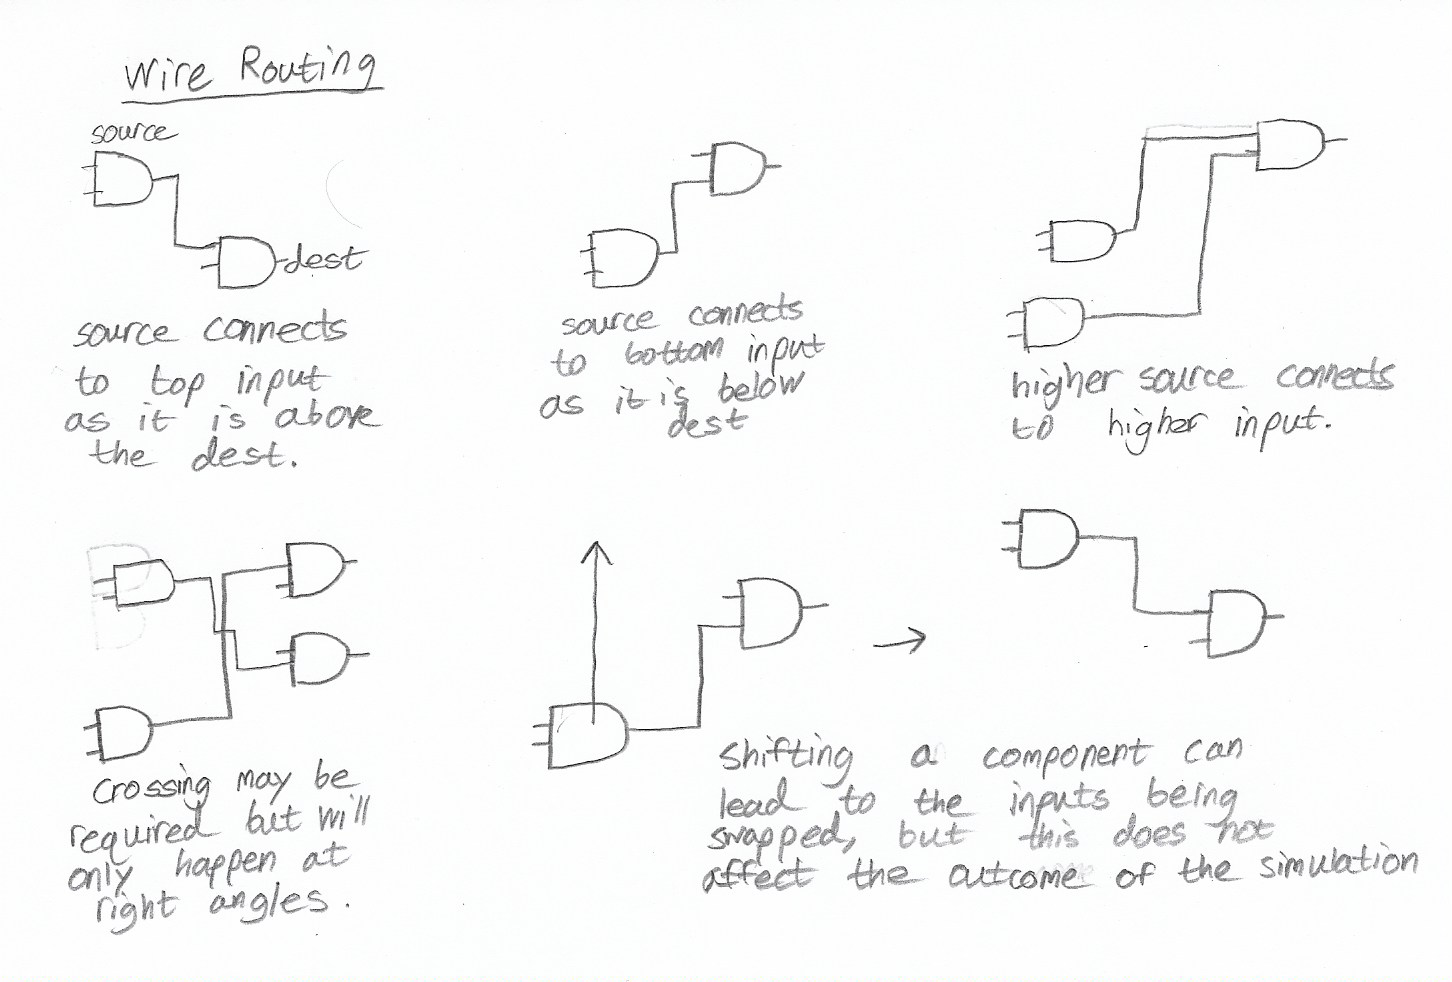 Wire Routing
source
dest
source connects
to top input
as it is above
the dest.
source connects
to bottom input
as it is below
dest
higher source connects
to higher input.
crossing may be
required but will
only happen at
right angles.
Shifting a component can
lead to the inputs being
swapped, but this does not
affect the outcome of the simulation